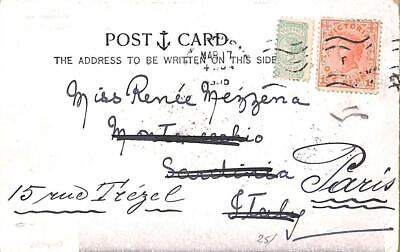 POST CARD
THE ADDRESS TO BE WRITTEN ON THIS SIDE
MAR 17
VICTORIA
Miss Renée Mezzena
Montevecchio
Sardinia
Italy
15 rue Trézel
Paris
25/